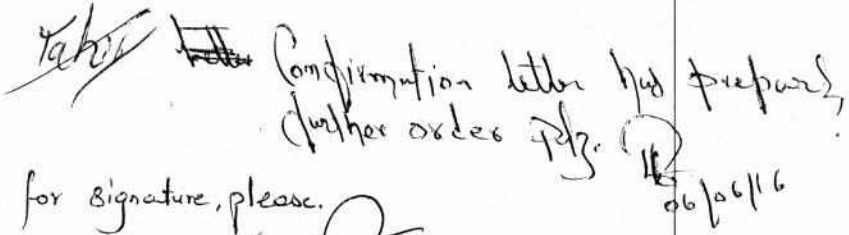 Tahir Confirmation letter has prepared,
further order Plz.
06/06/16
for signature, please.